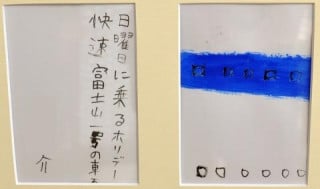 日曜日に乗るホリデー
快速富士山一号の車る
介